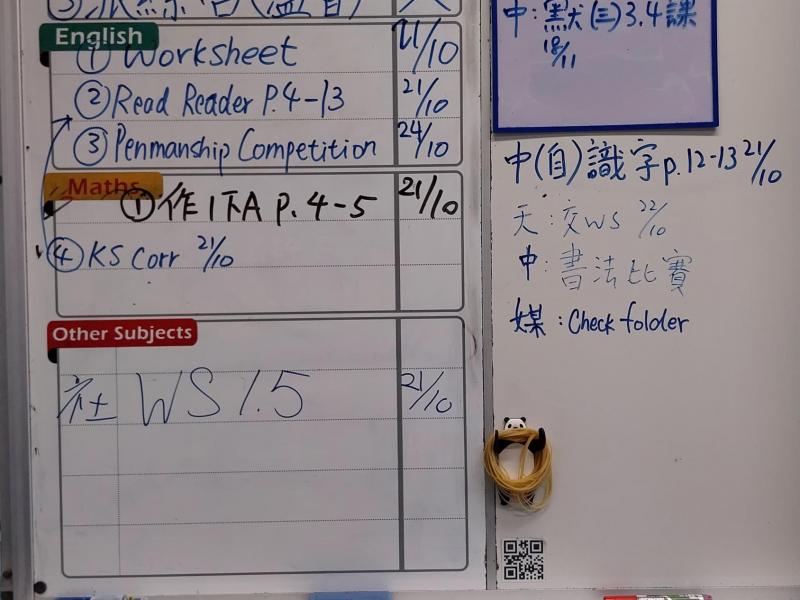 English
① Worksheet 21/10
② Read Reader P.4-13 21/10
③ Penmanship Competition 24/10
Maths
① 作1下A P. 4-5 21/10
④ KS Corr 21/10
Other Subjects
社 WS 1.5 21/10
中: 默(三)3.4課
18/11
中(自)識字p.12-13 21/10
天:交WS 22/10
中:書法比賽
媒:Check folder